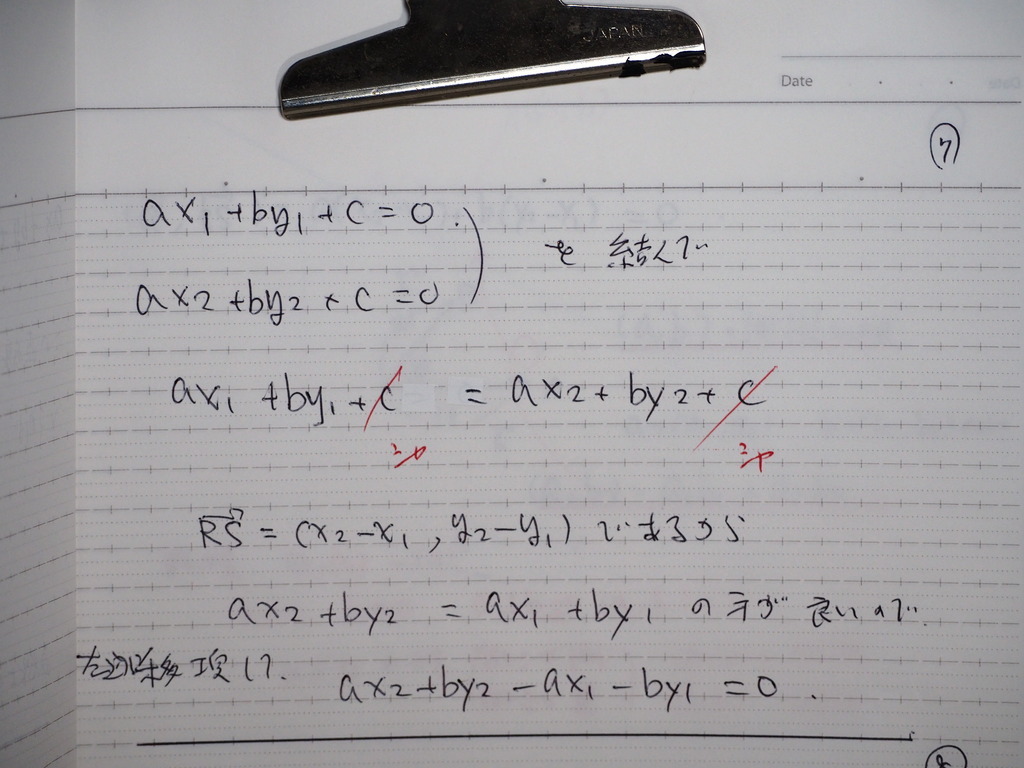 JAPAN
Date
⑦
ax₁+by₁+c=0.
を結んで
ax₂+by₂+c=0
ax₁+by₁+c = ax₂+by₂+c
RS→ = (x₂-x₁, y₂-y₁)であるから
ax₂+by₂ = ax₁+by₁の方が良いので.
左辺に移項して.
ax₂+by₂-ax₁-by₁=0.